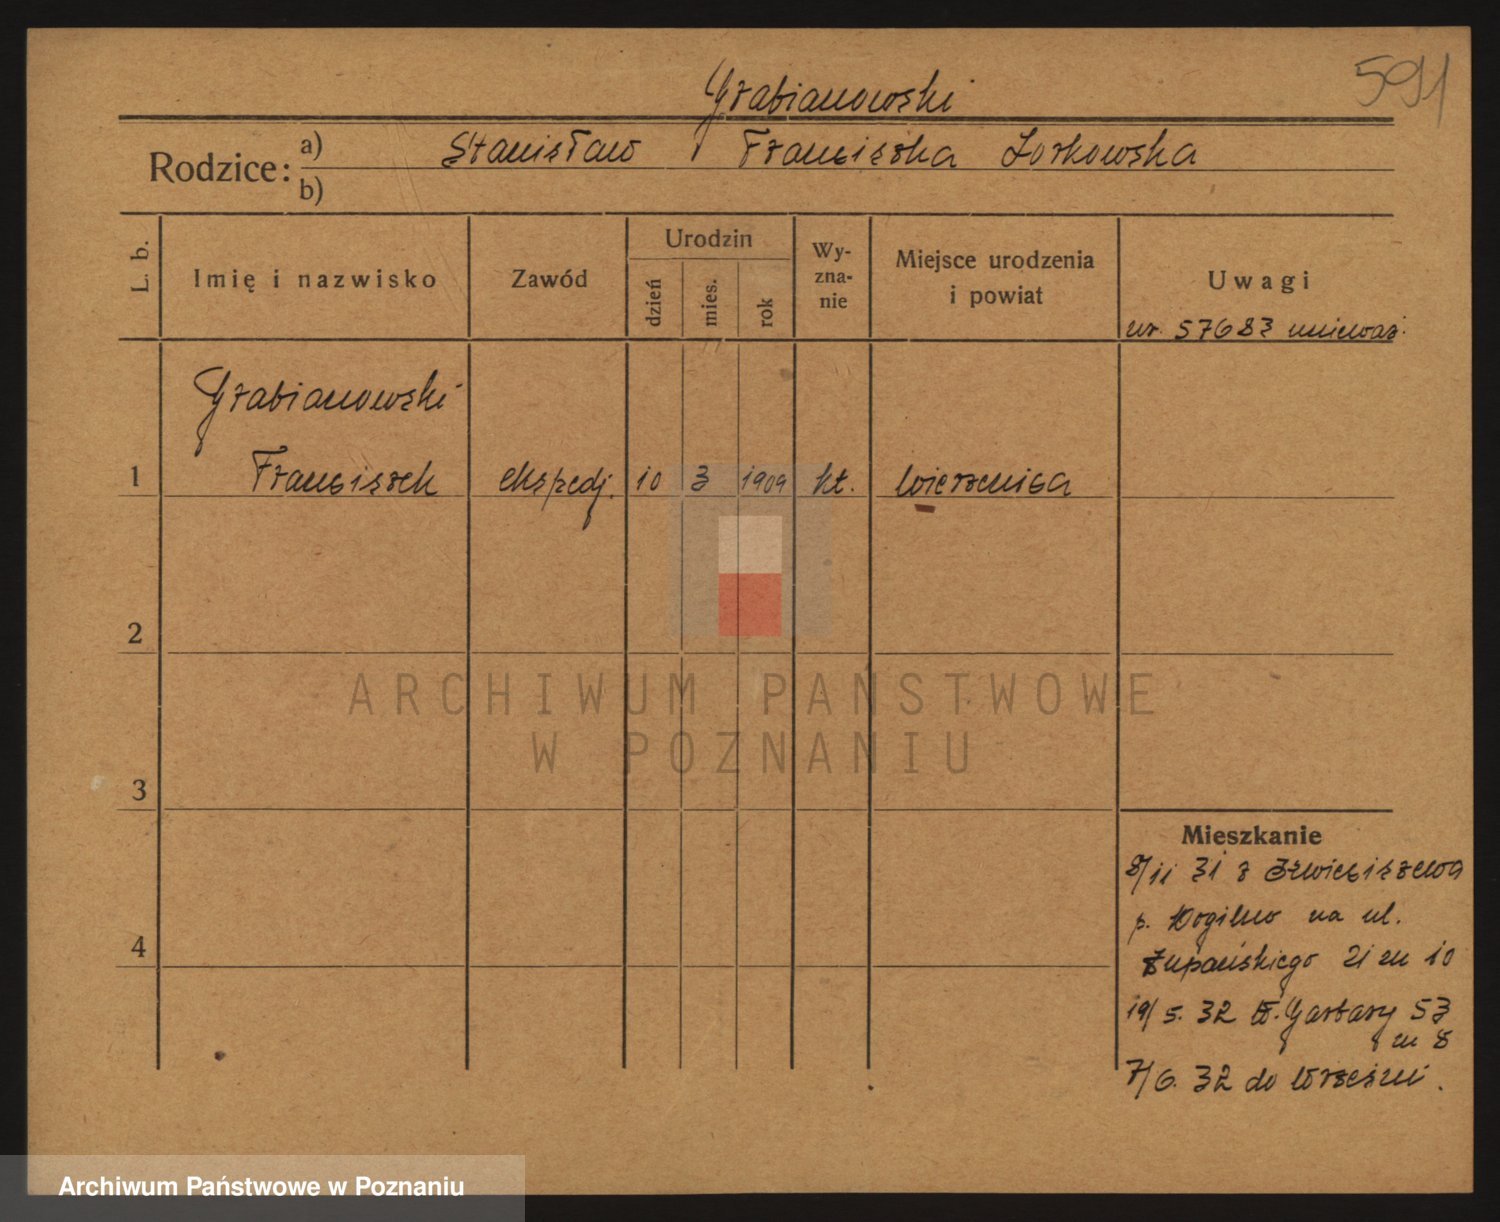 591
Grabianowski
Rodzice: a) Stanisław Franciszka Zorkowska
b)
L. b.
Imię i nazwisko
Zawód
Urodzin
dzień
mies.
rok
Wy-
zna-
nie
Miejsce urodzenia
i powiat
Uwagi
nr. 57683 unieważ.
Grabianowski
1 Franciszek ekspedj. 10 3 1909 kt. Wierzenica
2
ARCHIWUM PAŃSTWOWE
W POZNANIU
3
Mieszkanie
8/11 31 z
p. Mogilno na ul.
Żupańskiego 21 m 10
19/5. 32 W. Garbary 53
m 8
7/6. 32 do Wrześni.
4
Archiwum Państwowe w Poznaniu